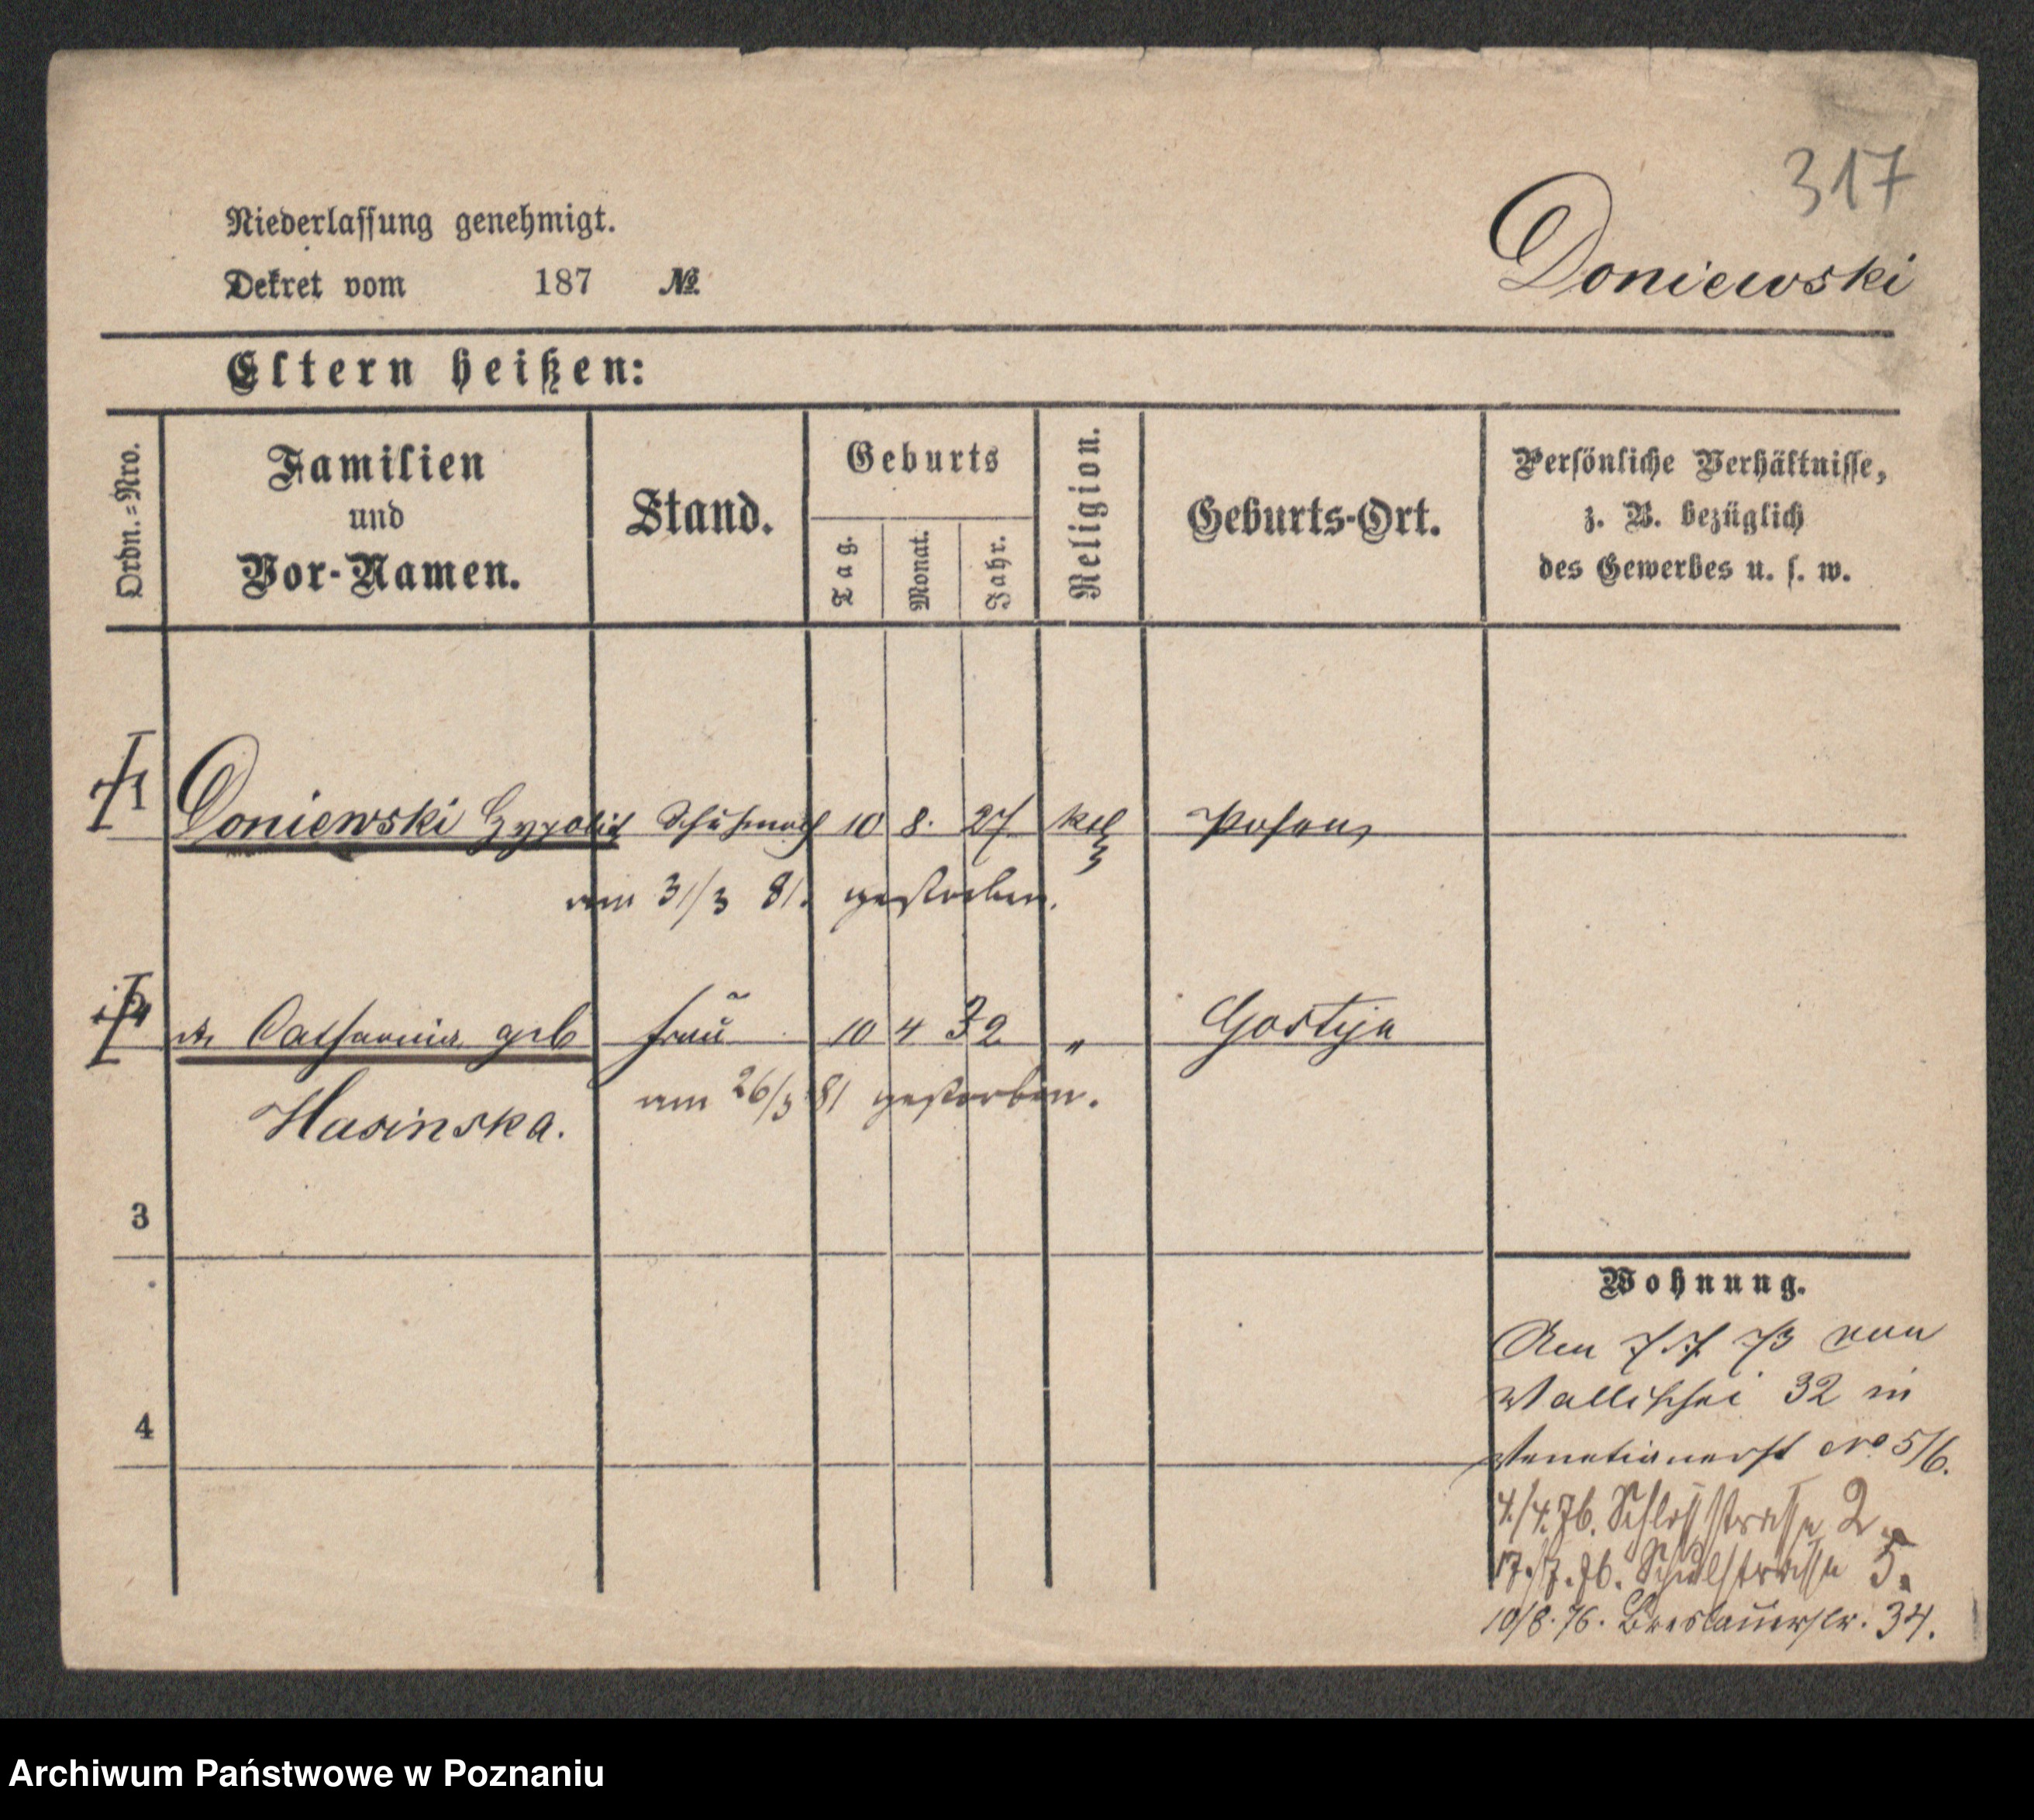 317
Niederlassung genehmigt.
Dekret vom 187 №
Doniewski
Eltern heißen:
Ordn.=Nro.
Familien
und
Vor-Namen.
Stand.
Geburts
Tag.
Monat.
Jahr.
Religion.
Geburts-Ort.
Persönliche Verhältnisse,
z. B. bezüglich
des Gewerbes u. s. w.
1 Doniewski Hypolit Schuhmach 10 8. 27 kth Posen
am 31/3 81. gestorben.
2 Catharina geb Frau 10 4 32 " Gostyn
am 26/3 81 gestorben.
Hasinska.
3
4
Wohnung.
Am 73 von
Wallischei 32 in
Venetianerst No 5/6.
4./4. 76. Schlossstrasse 2.
17./7. 76. Schulstrasse 5.
10/8. 76. Breslauerstr. 34.
Archiwum Państwowe w Poznaniu